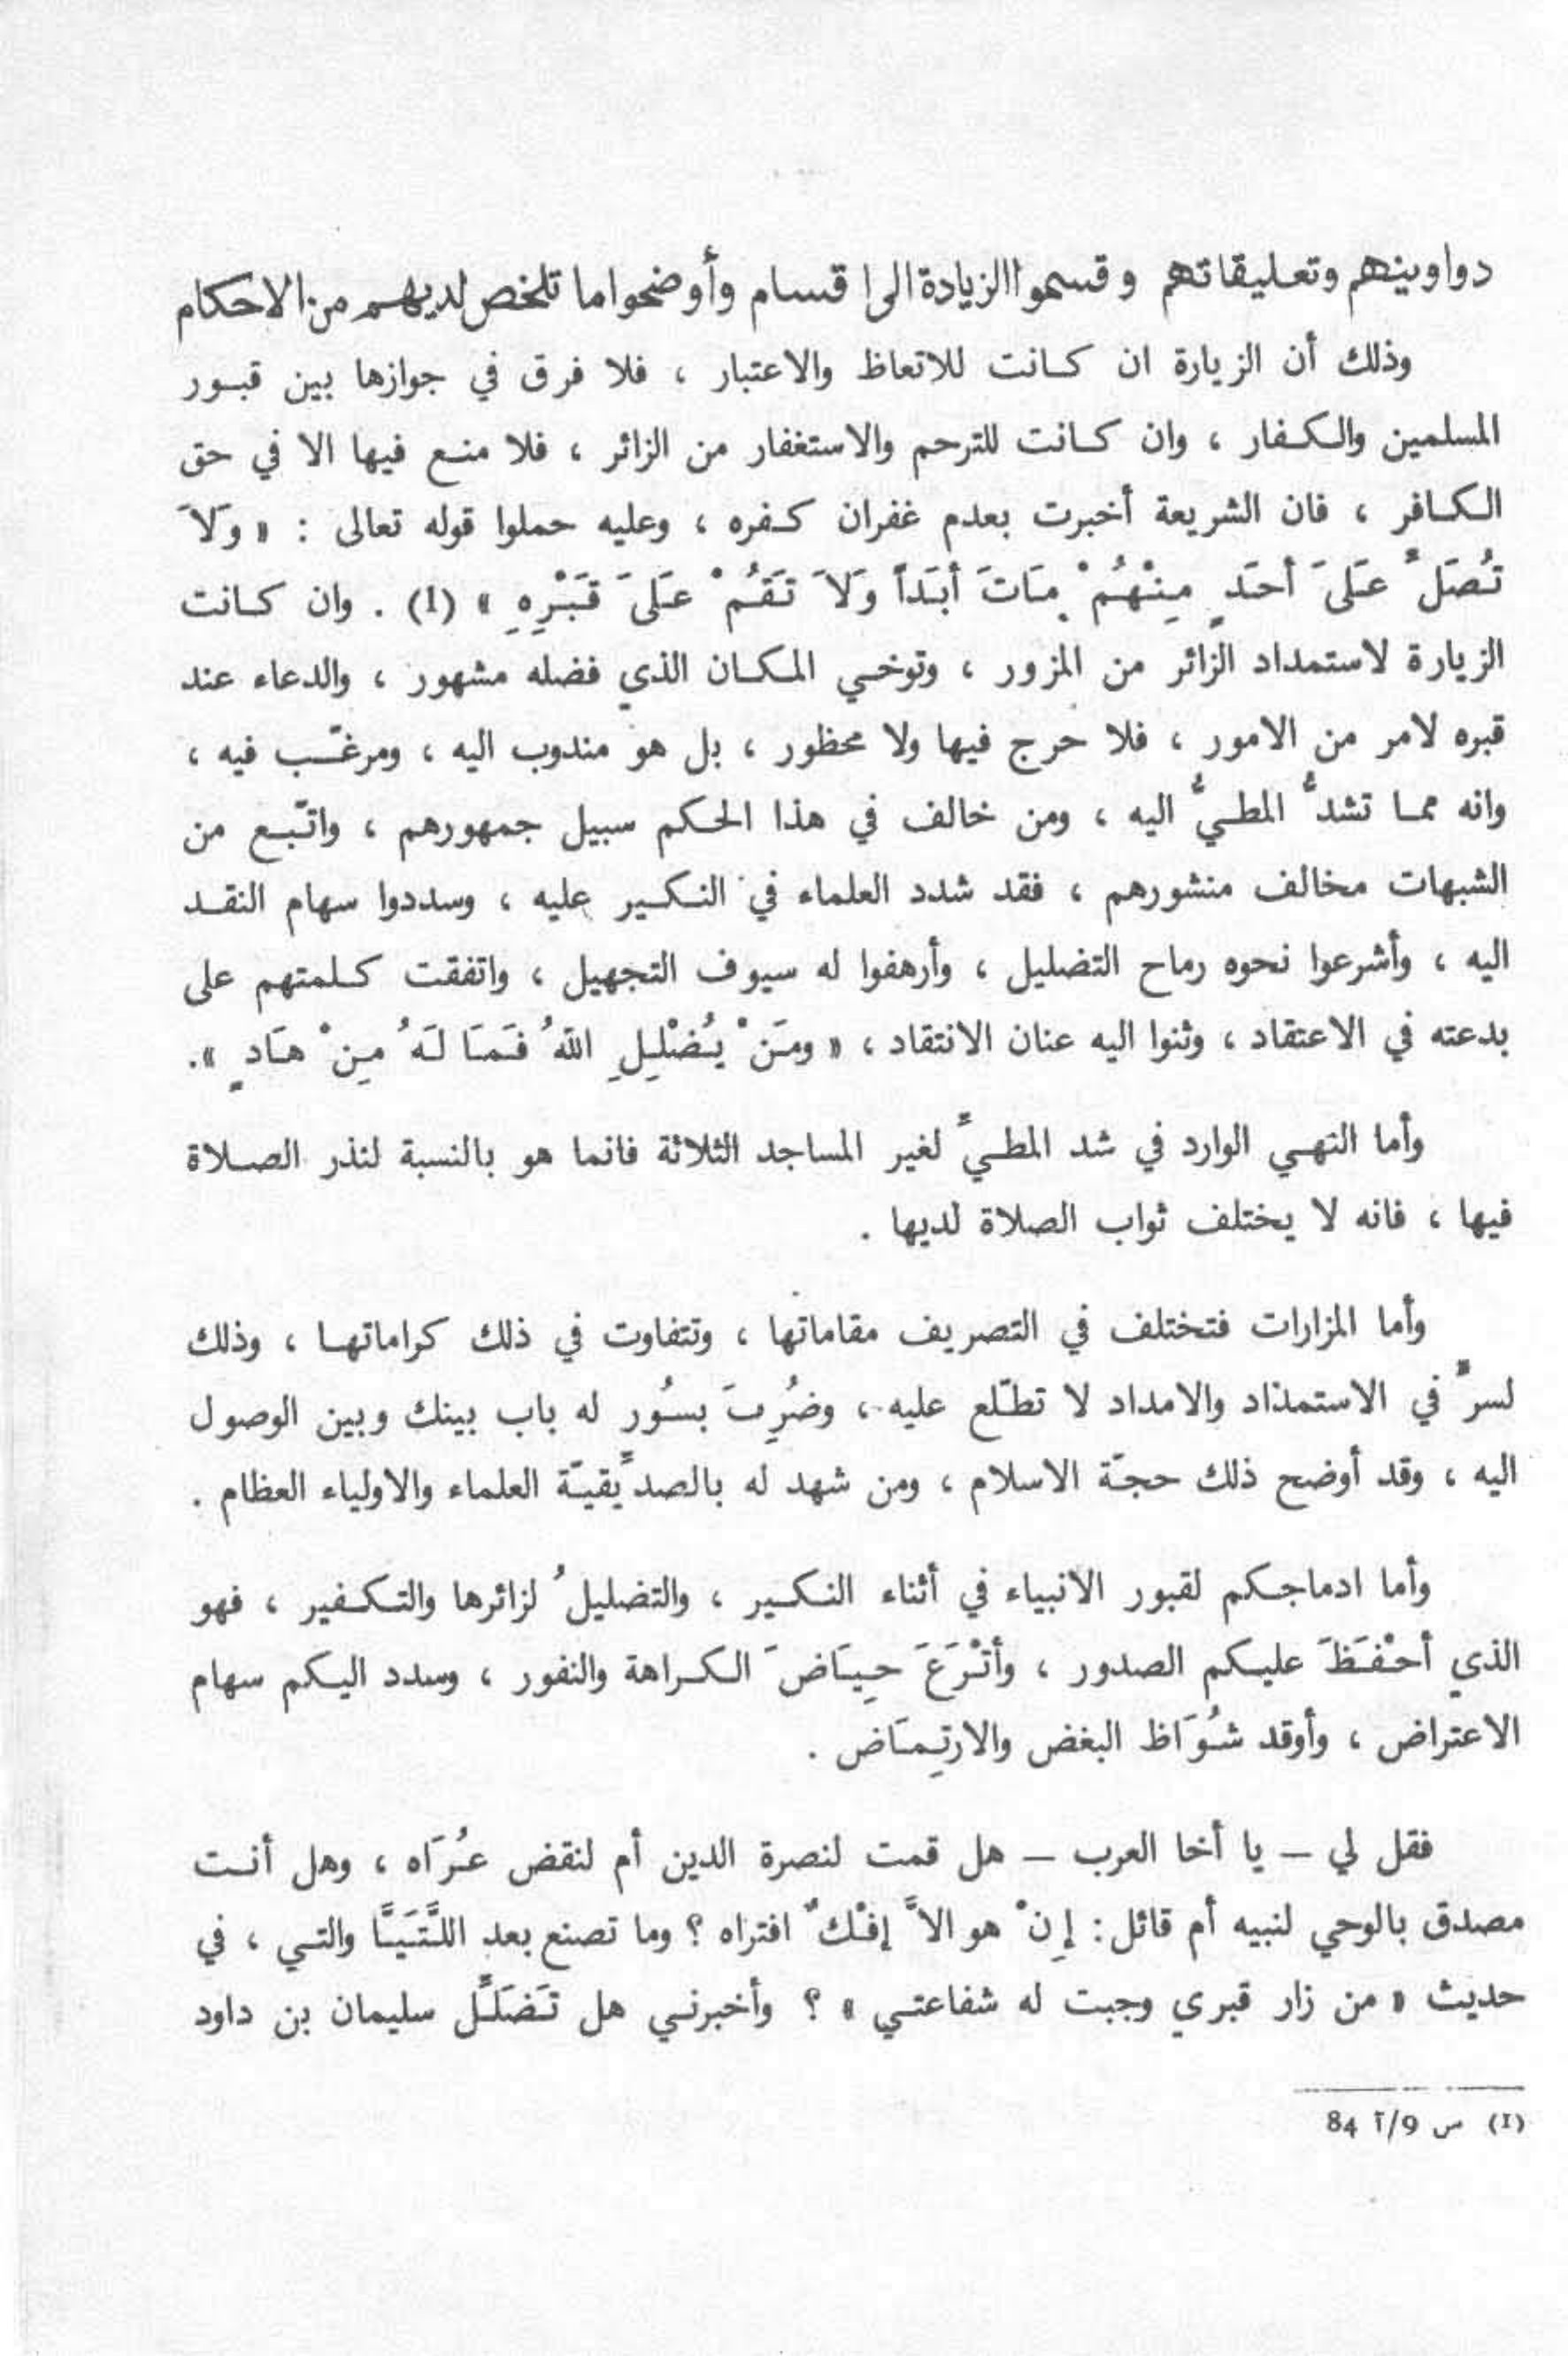 دواوينهم وتعليقاتهم وقسموا الزيادة الى اقسام وأوضحوا ما تلخص لديهم من الاحكام
وذلك أن الزيارة ان كانت للاتعاظ والاعتبار ، فلا فرق في جوازها بين قبور
المسلمين والكفار ، وان كانت للترحم والاستغفار من الزائر ، فلا منع فيها الا في حق
الكافر ، فان الشريعة أخبرت بعدم غفران كفره ، وعليه حملوا قوله تعالى : « وَلاَ
تُصَلِّ عَلَىَ أحَدٍ مِنْهُمْ مَاتَ أبَداً وَلاَ تَقُمْ عَلَىَ قَبْرِهِ » (1) . وان كانت
الزيارة لاستمداد الزائر من المزور ، وتوخي المكان الذي فضله مشهور ، والدعاء عند
قبره لامر من الامور ، فلا حرج فيها ولا محظور ، بل هو مندوب اليه ، ومرغّب فيه ،
وانه مما تشدُّ المطيُّ اليه ، ومن خالف في هذا الحكم سبيل جمهورهم ، واتّبع من
الشبهات مخالف منشورهم ، فقد شدد العلماء في النكير عليه ، وسددوا سهام النقد
اليه ، وأشرعوا نحوه رماح التضليل ، وأرهفوا له سيوف التجهيل ، واتفقت كلمتهم على
بدعته في الاعتقاد ، وثنوا اليه عنان الانتقاد ، « ومَنْ يُضْلِلِ اللهُ فَمَا لَهُ مِنْ هَادٍ ».
وأما النهي الوارد في شد المطيِّ لغير المساجد الثلاثة فانما هو بالنسبة لنذر الصلاة
فيها ، فانه لا يختلف ثواب الصلاة لديها .
وأما المزارات فتختلف في التصريف مقاماتها ، وتتفاوت في ذلك كراماتها ، وذلك
لسرٍّ في الاستمداد والامداد لا تطّلع عليه ، وضُرِبَ بسُور له باب بينك وبين الوصول
اليه ، وقد أوضح ذلك حجّة الاسلام ، ومن شهد له بالصدِّيقيّة العلماء والاولياء العظام .
وأما ادماجكم لقبور الانبياء في أثناء النكير ، والتضليلُ لزائرها والتكفير ، فهو
الذي أحْفَظَ عليكم الصدور ، وأتْرَعَ حِيَاضَ الكراهة والنفور ، وسدد اليكم سهام
الاعتراض ، وأوقد شُوَاظ البغض والارتِمَاض .
فقل لي – يا أخا العرب – هل قمت لنصرة الدين أم لنقض عُرَاه ، وهل أنت
مصدق بالوحي لنبيه أم قائل: إِنْ هو الاَّ إفْكٌ افتراه ؟ وما تصنع بعد اللَّتَيَّا والتي ، في
حديث « من زار قبري وجبت له شفاعتي » ؟ وأخبرني هل تَضَلَّل سليمان بن داود
(1) س 9/آ 84